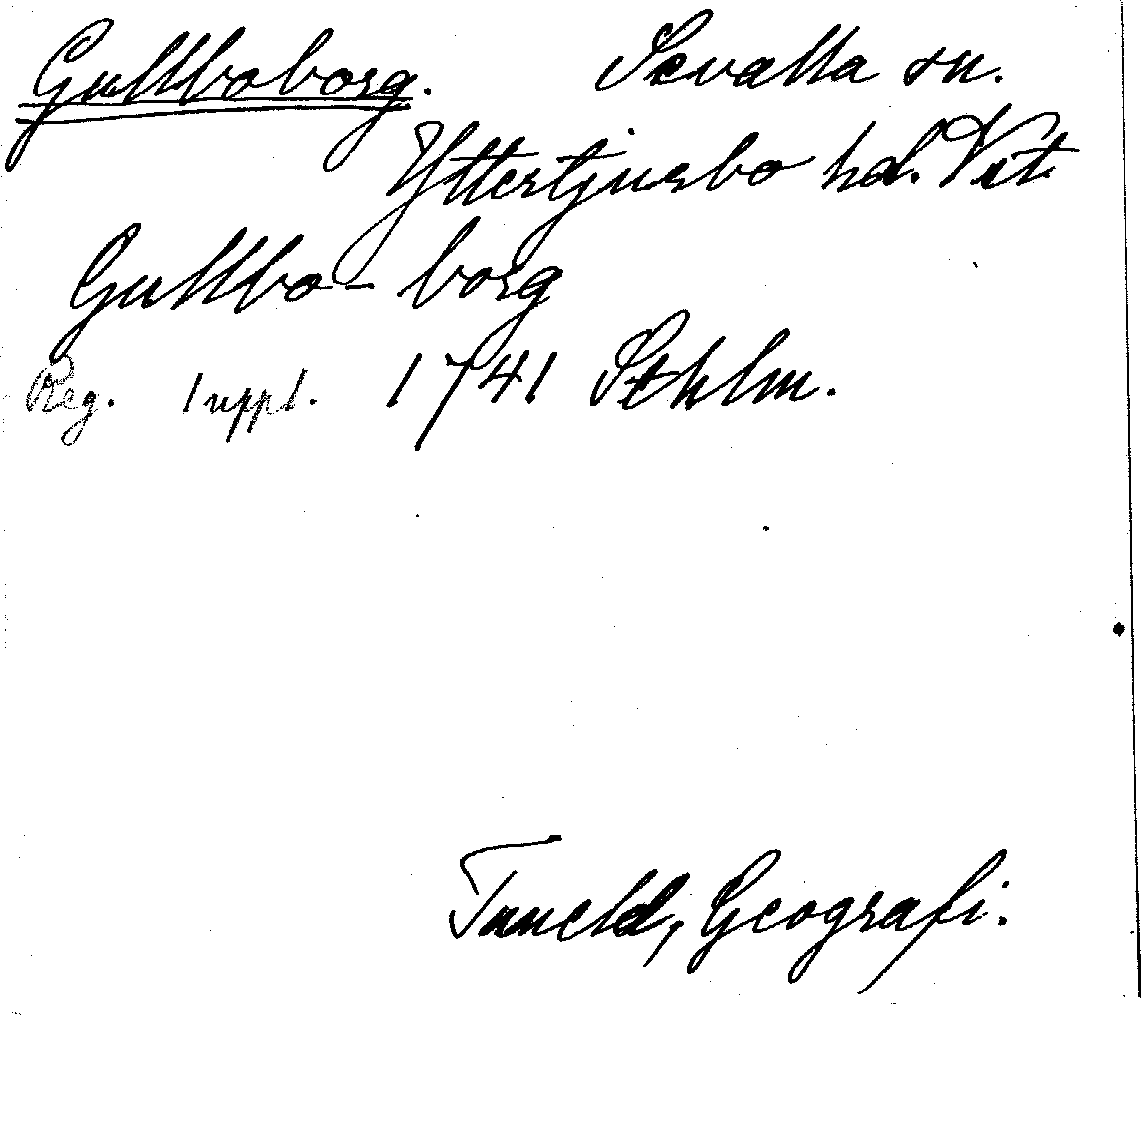 Gullboborg. Sevalla sn.
Yttertjurbo hd. Vst.
Gullbo - borg
Reg. 1 uppl. 1741 Sthlm.
Tuneld, Geografi.